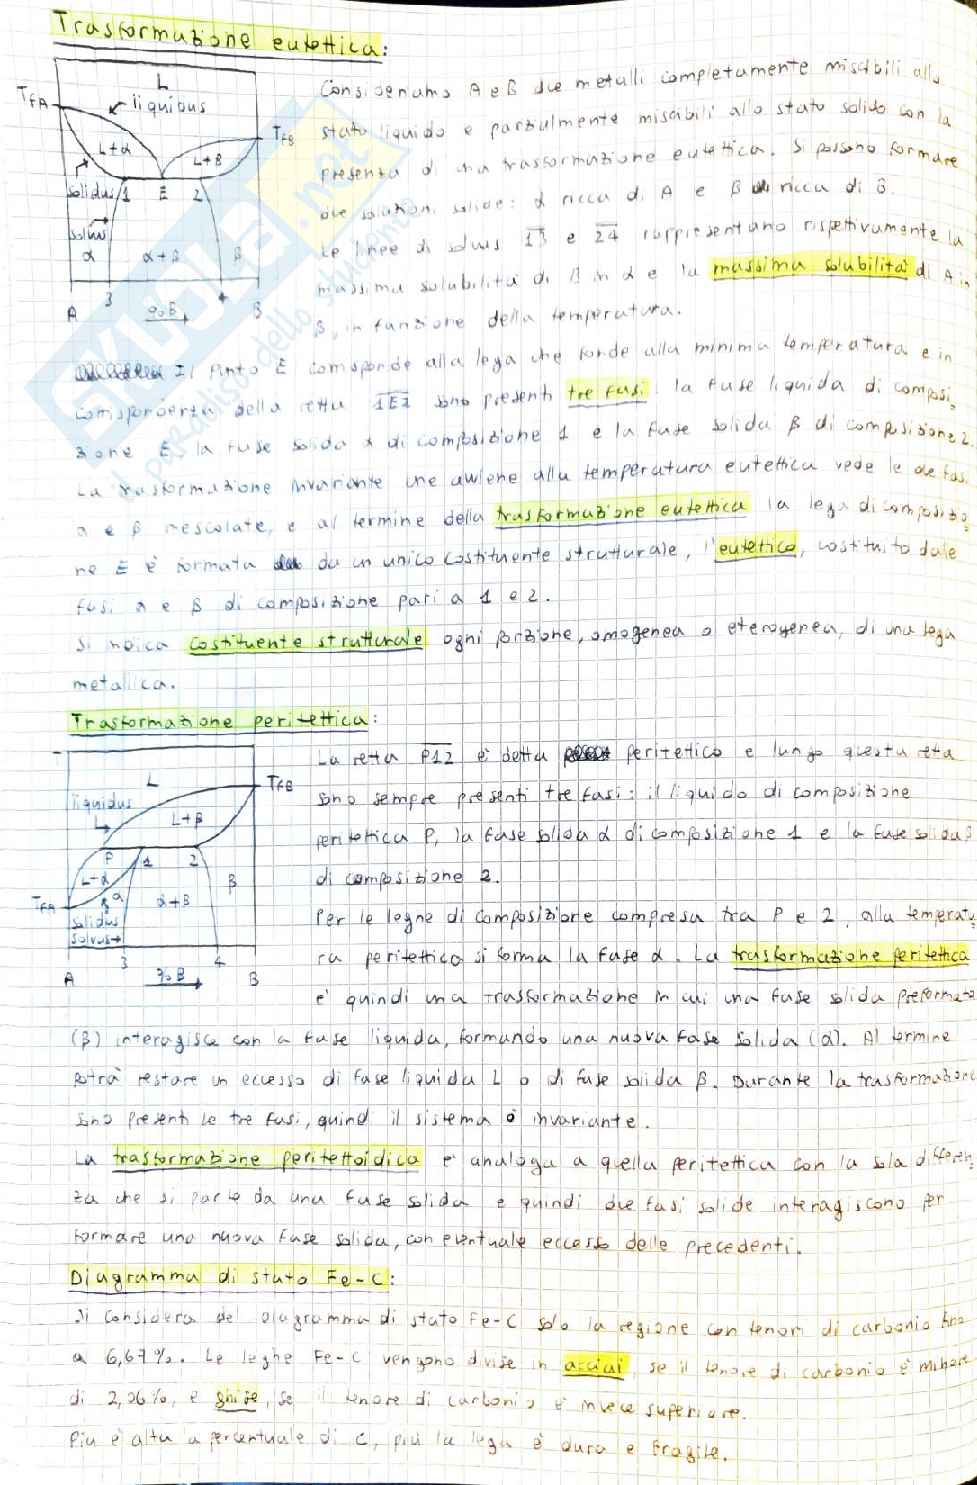 Trasformazione eutettica:
L
TfA
liquidus
L+α
L+β
TfB
solidus
1 E 2
solvus
α
α+β
β
A 3 %B 4 B
Consideriamo A e B due metalli completamente miscibili allo
stato liquido e parzialmente miscibili allo stato solido con la
presenza di una trasformazione eutettica. Si possono formare
due soluzioni solide: α ricca di A e β ricca di B.
Le linee di solvus 13 e 24 rappresentano rispettivamente la
massima solubilità di B in α e la massima solubilità di A in
β, in funzione della temperatura.
Il punto E corrisponde alla lega che fonde alla minima temperatura e in
corrispondenza della retta 1E2 sono presenti tre fasi: la fase liquida di composi
zione E, la fase solida α di composizione 1 e la fase solida β di composizione 2.
La trasformazione invariante che avviene alla temperatura eutettica vede le due fasi
α e β mescolate, e al termine della trasformazione eutettica la lega di composizio
ne E è formata da un unico costituente strutturale, l'eutettico, costituito dalle
fasi α e β di composizione pari a 1 e 2.
Si indica costituente strutturale ogni porzione, omogenea o eterogenea, di una lega
metallica.
Trasformazione peritettica:
L
liquidus
TfB
L+β
P 1 2
L+α
α
β
α+β
TfA
solidus
solvus
A 3 %B 4 B
La retta P12 è detta peritettico e lungo questa retta
sono sempre presenti tre fasi: il liquido di composizione
peritettica P, la fase solida α di composizione 1 e la fase solida β
di composizione 2.
Per le leghe di composizione compresa tra P e 2, alla temperatu
ra peritettica si forma la fase α. La trasformazione peritettica
è quindi una trasformazione in cui una fase solida preformata
(β) interagisce con la fase liquida, formando una nuova fase solida (α). Al termine
potrà restare un eccesso di fase liquida L o di fase solida β. Durante la trasformazione
sono presenti le tre fasi, quindi il sistema è invariante.
La trasformazione peritettoidica è analoga a quella peritettica con la sola differen
za che si parte da una fase solida e quindi due fasi solide interagiscono per
formare una nuova fase solida, con eventuale eccesso delle precedenti.
Diagramma di stato Fe-C:
Si considera del diagramma di stato Fe-C solo la regione con tenori di carbonio fino
a 6,67%. Le leghe Fe-C vengono divise in acciai, se il tenore di carbonio è minore
di 2,06%, e ghise, se il tenore di carbonio è invece superiore.
Più è alta la percentuale di C, più la lega è dura e fragile.
SKUOLA.net
il paradiso dello studente